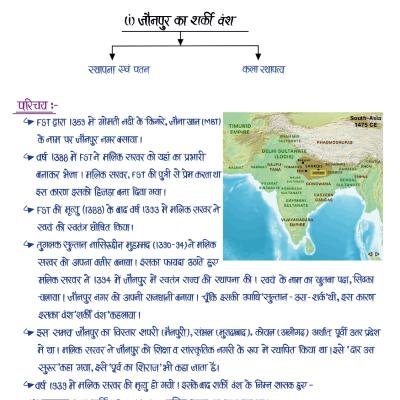 (i) जौनपुर का शर्की वंश
स्थापना एवं पतन
कला स्थापत्य
परिचय :-
↳ FST द्वारा 1353 में गोमती नदी के किनारे, जौना खान (MBT)
के नाम पर जौनपुर नगर बसाया।
↳ वर्ष 1388 में FST ने मलिक सरवर को यहां का प्रभारी
बनाकर भेजा। मलिक सरवर, FST की पुत्री से प्रेम करता था
इस कारण इसको हिजड़ा बना दिया गया।
↳ FST की मृत्यु (1388) के बाद वर्ष 1393 में मलिक सरवर ने
स्वयं को स्वतंत्र घोषित किया।
↳ तुगलक सुल्तान नासिरुद्दीन मुहम्मद (1390-94) ने मलिक
सरवर को अपना वजीर बनाया। इसका फायदा उठाते हुए
मलिक सरवर ने 1394 में जौनपुर में स्वतंत्र राज्य की स्थापना की। स्वयं के नाम का खुतबा पढ़ा, सिक्का
चलाया। जौनपुर नगर को अपनी राजधानी बनाया। चूँकि इसकी उपाधि 'सुल्तान-उस-शर्क' थी, इस कारण
इसका वंश 'शर्की वंश' कहलाया।
↳ इस समय जौनपुर का विस्तार शपरी (मैनपुरी), संभल (मुरादाबाद), कोयल (अलीगढ़) अर्थात् पूर्वी उत्तर प्रदेश
में था। मलिक सरवर ने जौनपुर को शिक्षा व सांस्कृतिक नगरी के रूप में स्थापित किया था। इसे 'दार उस
सुरूर' कहा गया, इसे 'पूर्व का शिराज' भी कहा जाता है।
↳ वर्ष 1399 में मलिक सरवर की मृत्यु हो गयी। इसके बाद शर्की वंश के निम्न शासक हुए -
South-Asia
1475 CE
TIMURID
EMPIRE
DELHI SULTANATE
(LODIS)
PHAGMODRUPAS
GONDWANA
BAHMANI
SULTANATE
VIJAYANAGARA
EMPIRE